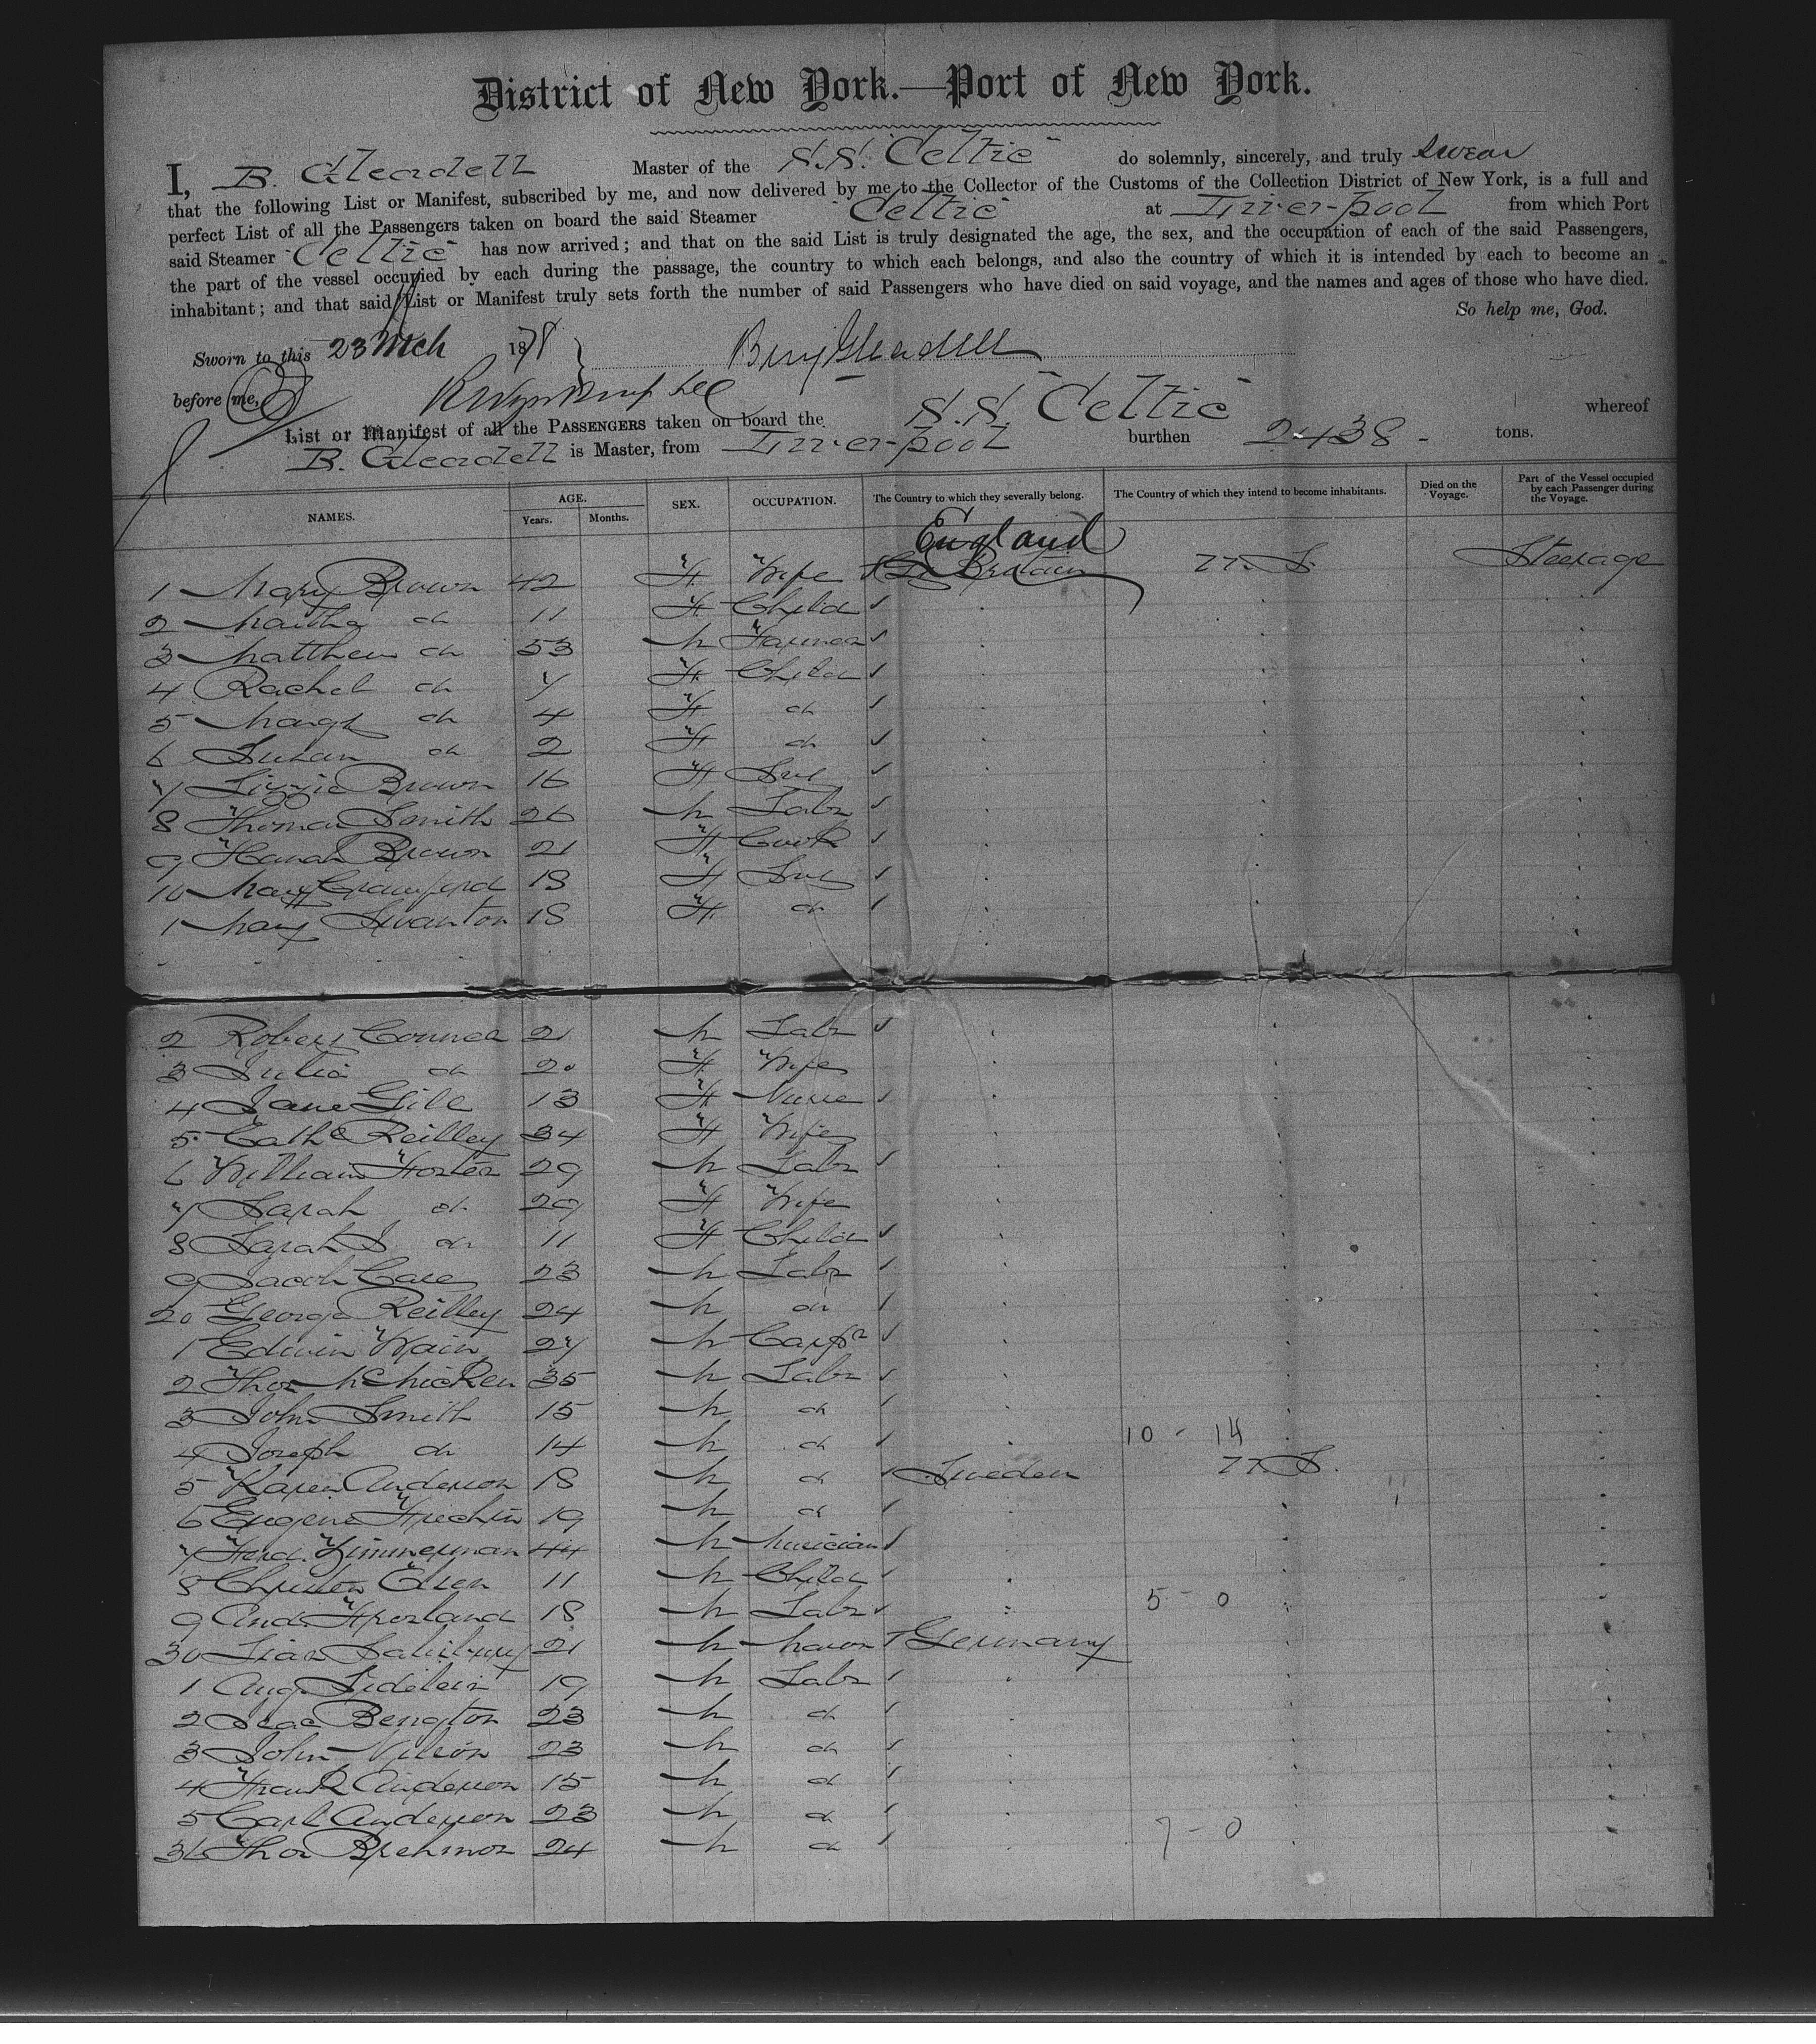 District of New York.—Port of New York.
I, B. Gleadell Master of the S.S. "Celtic" do solemnly, sincerely, and truly swear
that the following List or Manifest, subscribed by me, and now delivered by me to the Collector of the Customs of the Collection District of New York, is a full and
perfect List of all the Passengers taken on board the said Steamer "Celtic" at Liverpool from which Port
said Steamer "Celtic" has now arrived; and that on the said List is truly designated the age, the sex, and the occupation of each of the said Passengers,
the part of the vessel occupied by each during the passage, the country to which each belongs, and also the country of which it is intended by each to become an
inhabitant; and that said List or Manifest truly sets forth the number of said Passengers who have died on said voyage, and the names and ages of those who have died.
So help me, God.
Sworn to this 23 Mch 1878 Benj Gleadell
before me,
List or Manifest of all the PASSENGERS taken on board the S.S. "Celtic" whereof
B. Gleadell is Master, from Liverpool burthen 2438 tons.
NAMES. AGE. Years. Months. SEX. OCCUPATION. The Country to which they severally belong. The Country of which they intend to become inhabitants. Died on the Voyage. Part of the Vessel occupied by each Passenger during the Voyage.
England
1 Mary Brown 42 F. Wife Gt Britain U.S. Steerage
2 Martha do 11 F. Child
3 Matthew do 53 M Farmer
4 Rachel do 7 F. Child
5 Margt do 4 F do
6 Susan do 2 F. do
7 Lizzie Brown 16 F Svt
8 Thomas Smith 26 M Labr
9 Hanah Brown 21 F Cook
10 Mary Crawford 18 F Svt
1 Mary Swanton 18 F. do
2 Robert 21 M Labr
3 Julia do 20 F. Wife
4 Jane Gill 13 F Nurse
5 Cathe Reilley 34 F Wife
6 William Foster 29 M Labr
7 Sarah do 29 F Wife
8 Sarah J do 11 F Child
9 Jacob Care 23 M Labr
20 George Reilley 24 M do
1 Edwin Wain 27 M Carpr
2 Thos McMicken 35 M Labr
3 John Smith 15 M do
4 Joseph do 14 M do 10 - 14
5 Karen Anderson 18 M do Sweden U.S.
6 Eugene 19 M do
7 Ferd. Zimmerman 44 M Musician
8 Christen Olsen 11 M Child
9 And. 18 M Labr 5 - 0
30 Salisbury 21 M Mason Germany
1 Aug. 19 M Labr
2 Isac Bengton 23 M do
3 John Nilson 23 M do
4 Frank Anderson 15 M do
5 Carl Anderson 23 M do
36 Thos Brehmor 24 M do 7 - 0